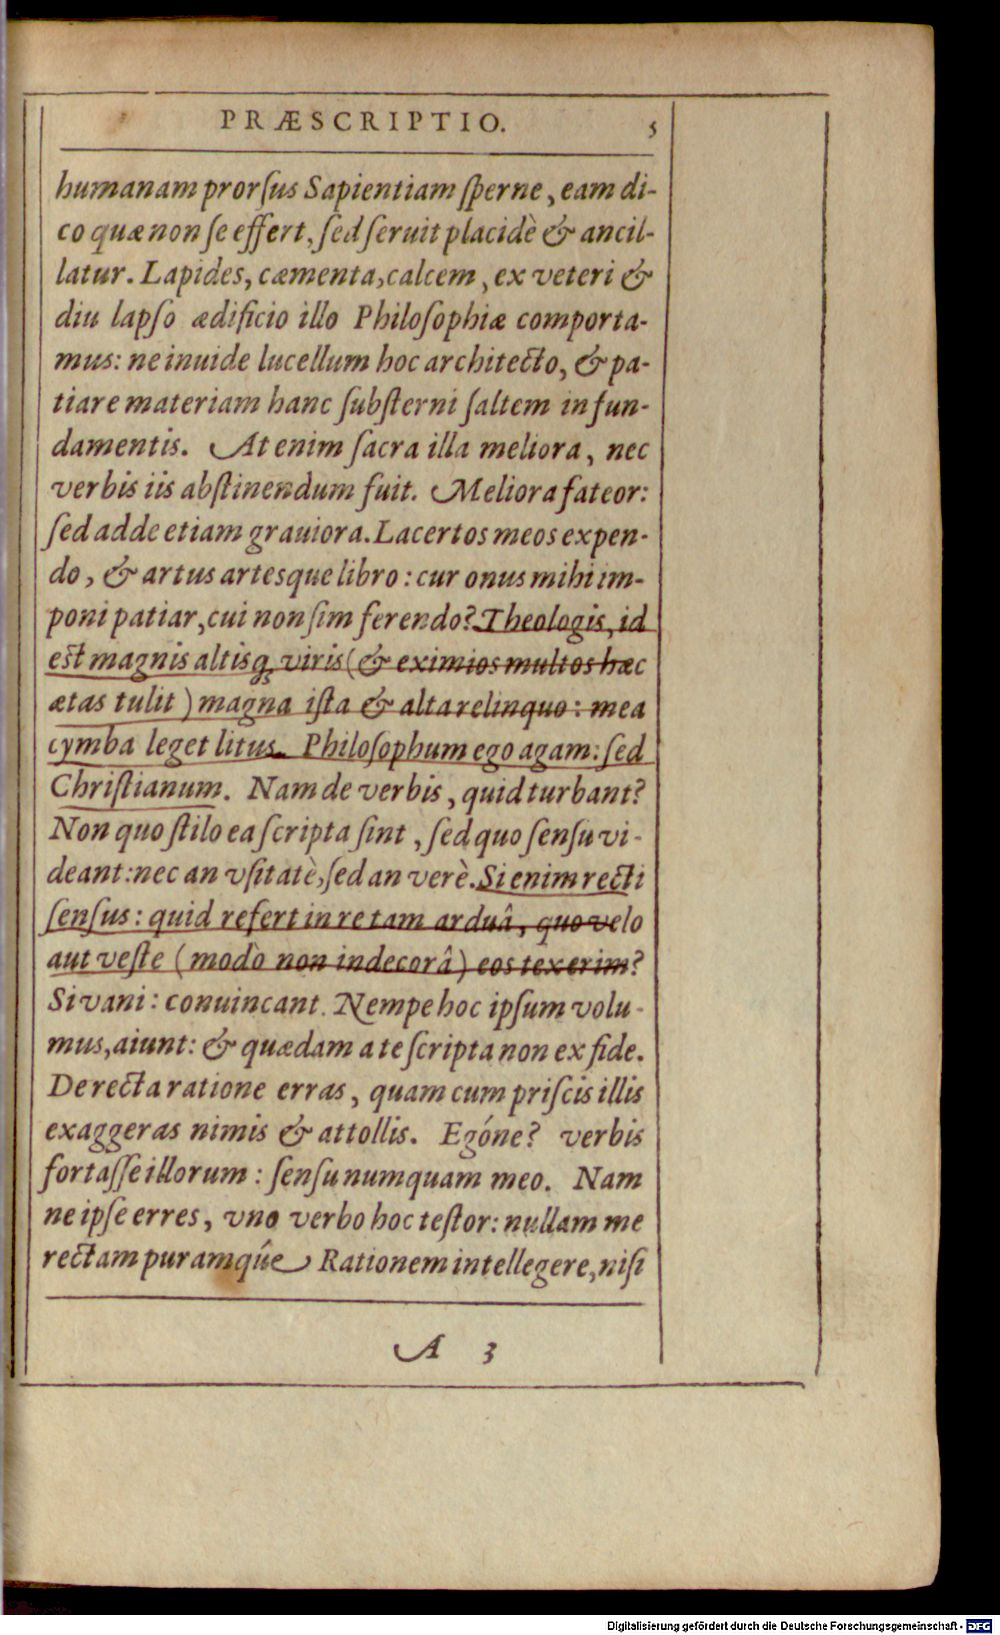 PRÆSCRIPTIO. 5
humanam prorſus Sapientiam ſperne, eam di-
co quæ non ſe effert, ſed ſeruit placidè & ancil-
latur. Lapides, cæmenta, calcem, ex veteri &
diu lapſo ædificio illo Philoſophiæ comporta-
mus: ne inuide lucellum hoc architecto, & pa-
tiare materiam hanc ſubſterni ſaltem in fun-
damentis. At enim ſacra illa meliora, nec
verbis iis abſtinendum fuit. Meliora fateor:
ſed adde etiam grauiora. Lacertos meos expen-
do, & artus artesque libro: cur onus mihi im-
poni patiar, cui non ſim ferendo? Theologis, id
est magnis altisq; viris (& eximios multos hæc
ætas tulit) magna iſta & alta relinquo: mea
cymba leget litus. Philoſophum ego agam: ſed
Chriſtianum. Nam de verbis, quid turbant?
Non quo ſtilo ea ſcripta ſint, ſed quo ſenſu vi-
deant: nec an vſitatè, ſed an verè. Si enim recti
ſenſus: quid refert in re tam arduâ, quo velo
aut veſte (modò non indecorâ) eos texerim?
Si vani: conuincant. Nempe hoc ipſum volu-
mus, aiunt: & quædam a te ſcripta non ex fide.
De recta ratione erras, quam cum priſcis illis
exaggeras nimis & attollis. Egóne? verbis
fortaſſe illorum: ſenſu numquam meo. Nam
ne ipſe erres, vno verbo hoc teſtor: nullam me
rectam puramqúe Rationem intellegere, niſi
A 3
Digitalisierung gefördert durch die Deutsche Forschungsgemeinschaft - DFG